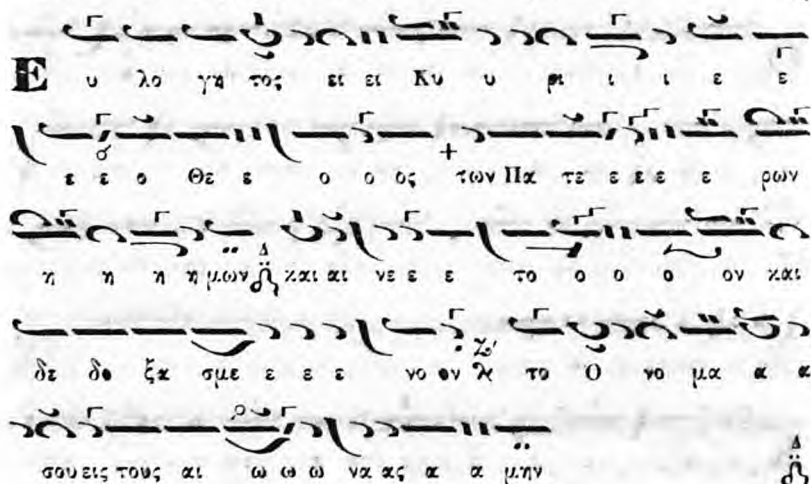 Ευ λο γη τος ει ει Κυ υ ρι ι ι ε ε
ε ε ο Θε ε ο ο ος των Πα τε ε ε ε ε ρων
η η η η μων Δ και αι νε ε ε το ο ο ο ον και
δε δο ξα σμε ε ε ε νο ον Ζ' το Ο νο μα α α
σου εις τους αι ω ω ω να ας α α μην Δ